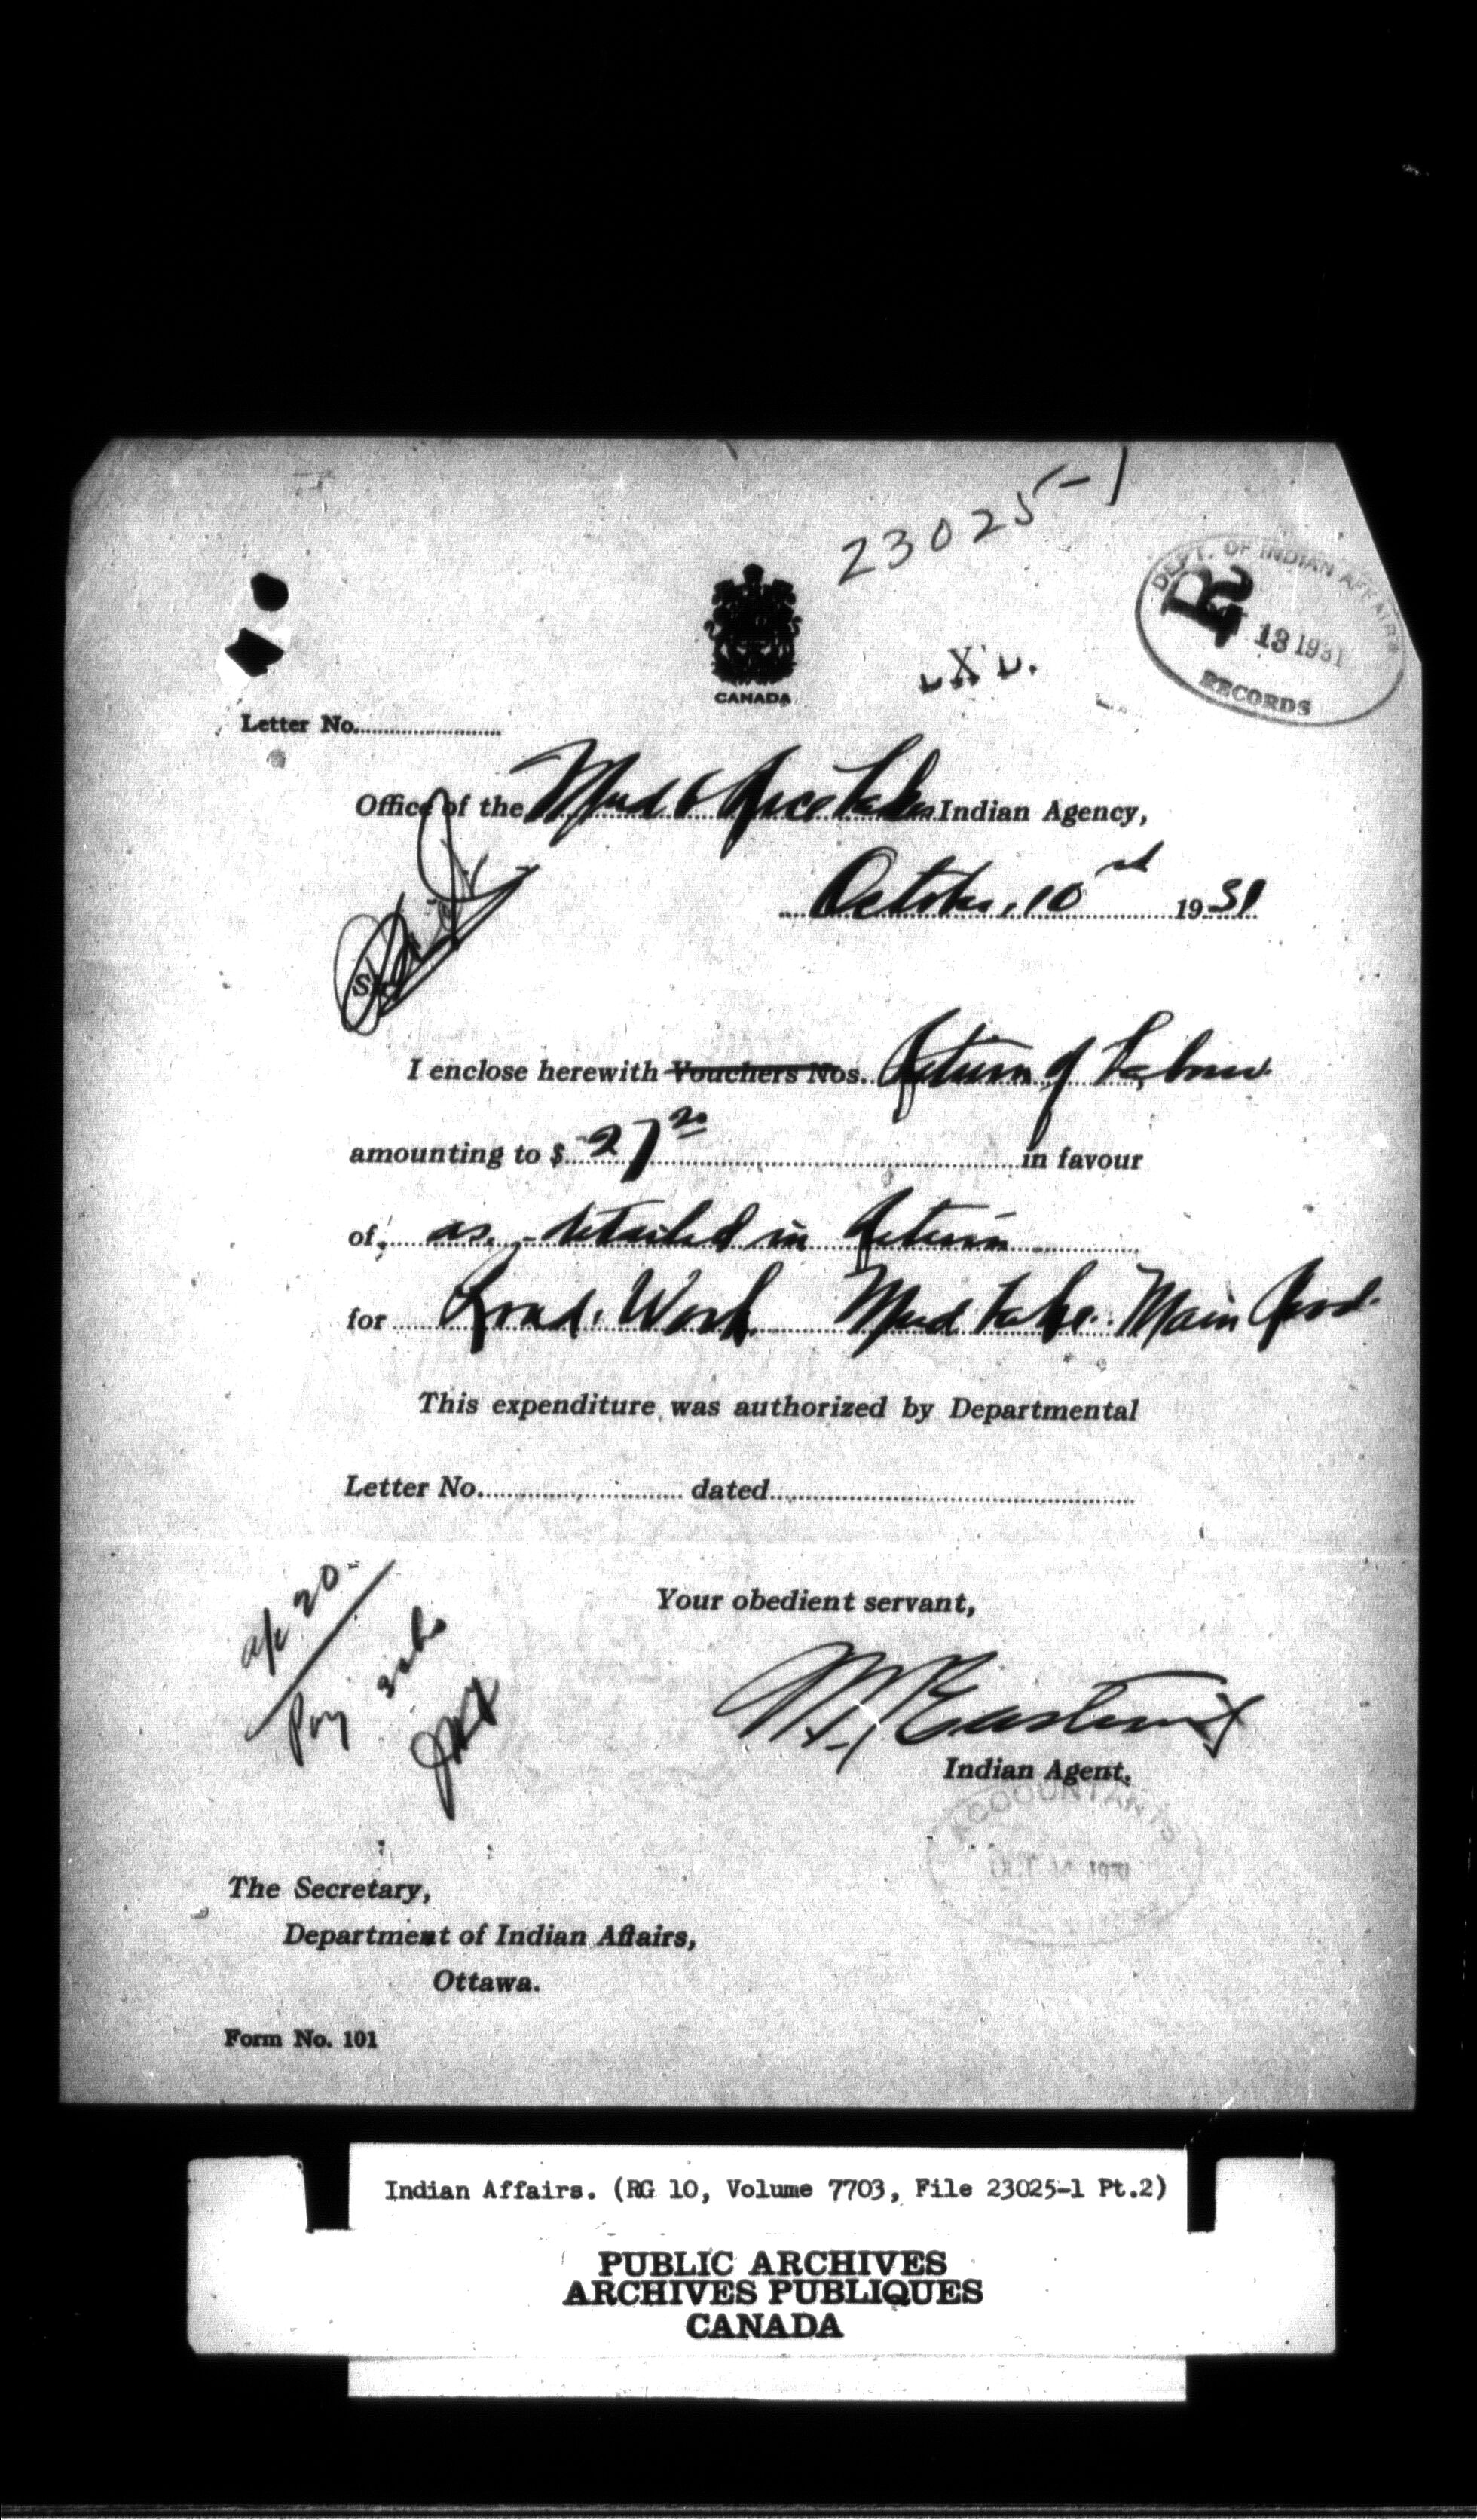 23025-1
DEPT. OF INDIAN AFFAIRS
13 1931
RECORDS
CANADA
Letter No.
Office of the Mud & Rice Lake Indian Agency,
October, 10 1931
I enclose herewith Vouchers Nos. Return of Labour
amounting to $ 27 20 in favour
of as detailed in Return
for Road Work Mud Lake Main Road.
This expenditure was authorized by Departmental
Letter No. dated
a/c 20-
Pay
Your obedient servant,
Indian Agent.
ACCOUNTANTS
OCT 1931
The Secretary,
Department of Indian Affairs,
Ottawa.
Form No. 101
Indian Affairs. (RG 10, Volume 7703, File 23025-1 Pt.2)
PUBLIC ARCHIVES
ARCHIVES PUBLIQUES
CANADA